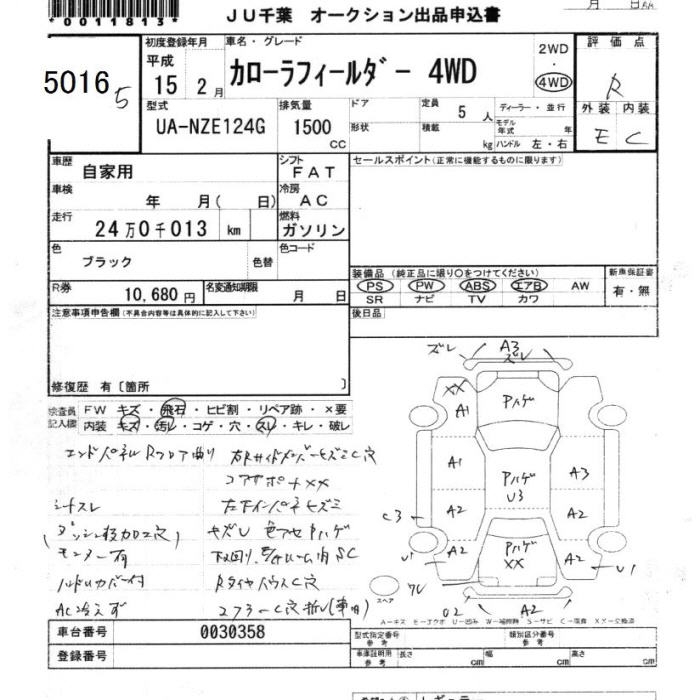 *0011813*
月 日
JU千葉 オークション出品申込書
5016
5
初度登録年月
平成
15 年 2 月
車名・グレード
カローラフィールダー 4WD
2WD
・
4WD
評価点
R
型式
UA-NZE124G
排気量
1500
CC
ドア
形状
定員
5 人
積載
kg
ディーラー・並行
モデル年式 年
ハンドル 左・右
外装 内装
E C
車歴
自家用
シフト
FAT
セールスポイント(正常に機能するものに限ります)
車検
年 月( 日)
冷房
AC
走行
24万0千013 km
燃料
ガソリン
色
ブラック
色替
色コード
R券
10,680円
名変通知期限
月 日
装備品(純正品に限り○をつけてください)
PS PW ABS エアB AW
SR ナビ TV カワ
新車保証書
有・無
注意事項申告欄(不具合内容等は具体的に記入して下さい)
後日品
修復歴 有〔箇所 〕
検査員記入欄
FW キズ・飛石・ヒビ割・リペア跡・×要
内装 キズ・汚レ・コゲ・穴・スレ・キレ・破レ
エンドパネルRフロア曲り
コアサポートXX
シートスレ
左下インパネキズミ
(ダッシュ板加工穴)
キズU 色アセ Pハゲ
モニター有
ハンドルカバー付
AC冷えず
ズレ
A3
ズレ
XX
A1
Pハゲ
A1
Pハゲ
U3
A3
C3
A2
A2
U1
A2
Pハゲ
XX
A2
U1
ワレ
U2
A2
スペア
A-キズ E-エクボ U-凹み W-補修跡 S-サビ C-腐食 XX-交換済
車台番号
0030358
登録番号
型式指定番号
参考
類別区分番号
参考
車庫証明用
参考
長さ
cm
幅
cm
高さ
cm